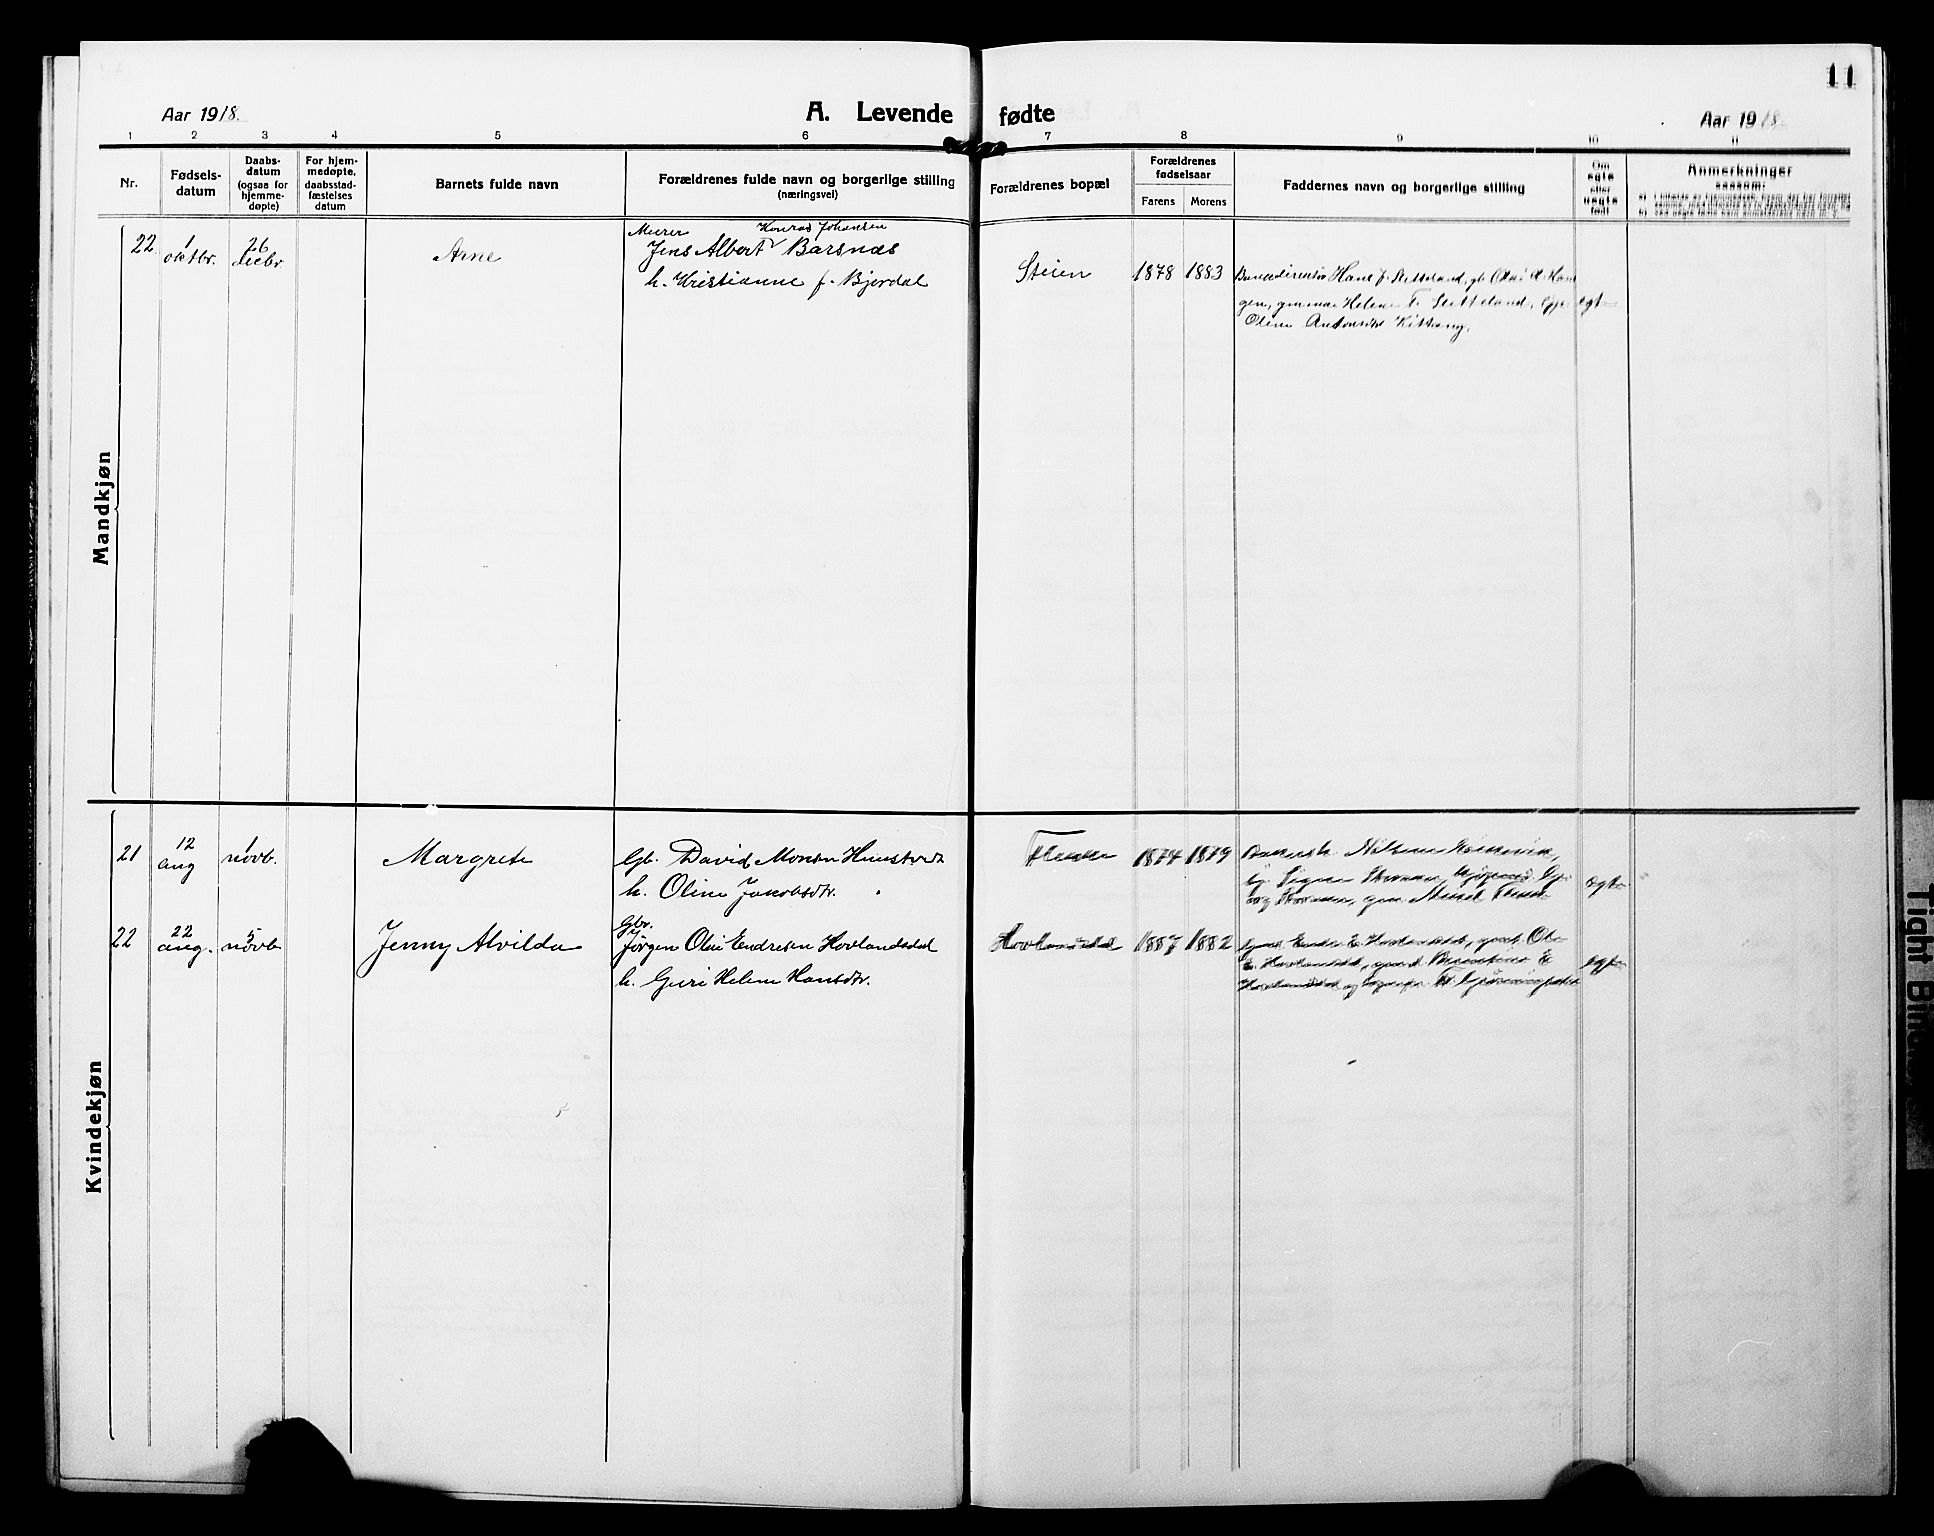 11
Aar 1918.
A. Levende fødte
Aar 1918.
1 2 3 4 5 6 7 8 9 10 11
Nr.
Fødsels-
datum
Daabs-
datum
(ogsaa for
hjemme-
døpte)
For hjem-
medøpte,
daabsstad-
fæstelses
datum
Barnets fulde navn
Forældrenes fulde navn og borgerlige stilling
(næringsvei)
Forældrenes bopæl
Forældrenes
fødselsaar
Farens Morens
Faddernes navn og borgerlige stilling
Om
egte
eller
uegte
født
Anmerkninger
saasom:
Mandkjøn
22 1 oktbr. 26 decbr. Arne
Murer Konrad Johansen
Jens Albert Barsnæs
h. Kristianne f. Bjordal
Steien 1878 1883
Hans J. Sletteland, gb.
Helene T. Sletteland, egte
Oline Antonsdtr Kittang.
Kvindekjøn
21 12 aug 1 novb. Margrete
Gb. David Monsen
h. Oline Jakobsdtr.
1874 1879
Signe
egte
22 22 aug. 5 novb Jenny Alvilda
Gbr.
Jørgen Olai Endresen Hovlandsdal
h. Guri Helene Hansdtr.
Hovlandsdal 1887 1882
Endre E. Hovlandsdal, Ole
E. Hovlandsdal, E. egte
Hovlandsdal og
Tight Bin